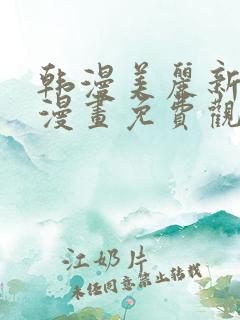 韩漫美麗新
漫畫免費觀
江奶片
未经同意禁止转载